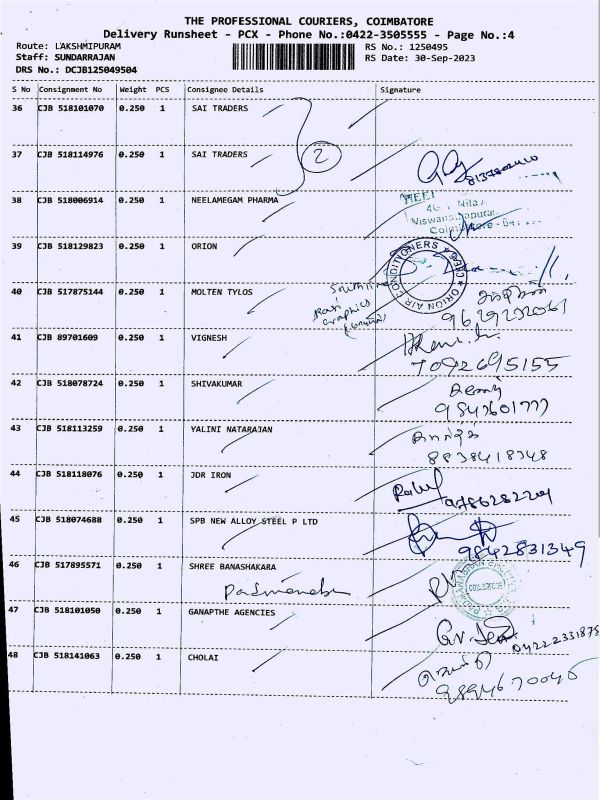 THE PROFESSIONAL COURIERS, COIMBATORE
Delivery Runsheet - PCX - Phone No.:0422-3505555 - Page No.:4
Route: LAKSHMIPURAM RS No.: 1250495
Staff: SUNDARRAJAN RS Date: 30-Sep-2023
DRS No.: DCJB125049504
S No Consignment No Weight PCS Consignee Details Signature
36 CJB 518101070 0.250 1 SAI TRADERS
2
37 CJB 518114976 0.250 1 SAI TRADERS
38 CJB 518006914 0.250 1 NEELAMEGAM PHARMA
39 CJB 518129823 0.250 1 ORION
ORION AIR CONDITIONERS
40 CJB 517875144 0.250 1 MOLTEN TYLOS
Graphics
9629232061
41 CJB 89701609 0.250 1 VIGNESH
7092695155
42 CJB 518078724 0.250 1 SHIVAKUMAR
43 CJB 518113259 0.250 1 YALINI NATARAJAN
8838418348
44 CJB 518118076 0.250 1 JDR IRON
45 CJB 518074688 0.250 1 SPB NEW ALLOY STEEL P LTD
9842831349
46 CJB 517895571 0.250 1 SHREE BANASHAKARA
47 CJB 518101050 0.250 1 GANAPTHE AGENCIES
04222331878
48 CJB 518141063 0.250 1 CHOLAI